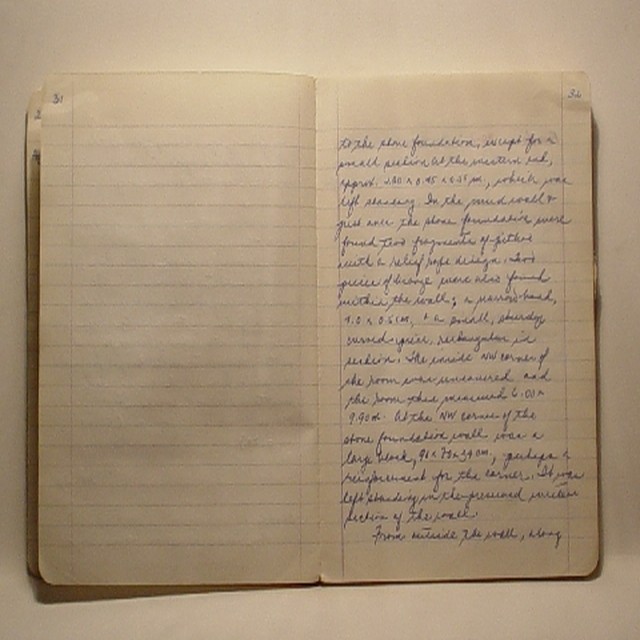 31
32
to the stone foundation, except for a
small section at the western end,
approx. 2.80 x 0.45 x 0.35 m., which was
left standing. In the mud wall &
just over the stone foundation were
found two fragments of pithoi
with a relief rope design. Two
pieces of bronze were also found
within the wall; a narrow band,
& a small, sturdy
curved piece, rectangular in
section. The inside NW corner of
the room was uncovered and
the room thus measured 6.00 x
9.90 m. At the NW corner of the
stone foundation wall was a
large block, 96 x 73 x 34 cm., perhaps a
reinforcement for the corner. It was
left standing in the preserved
section of the wall.
From outside the wall, along